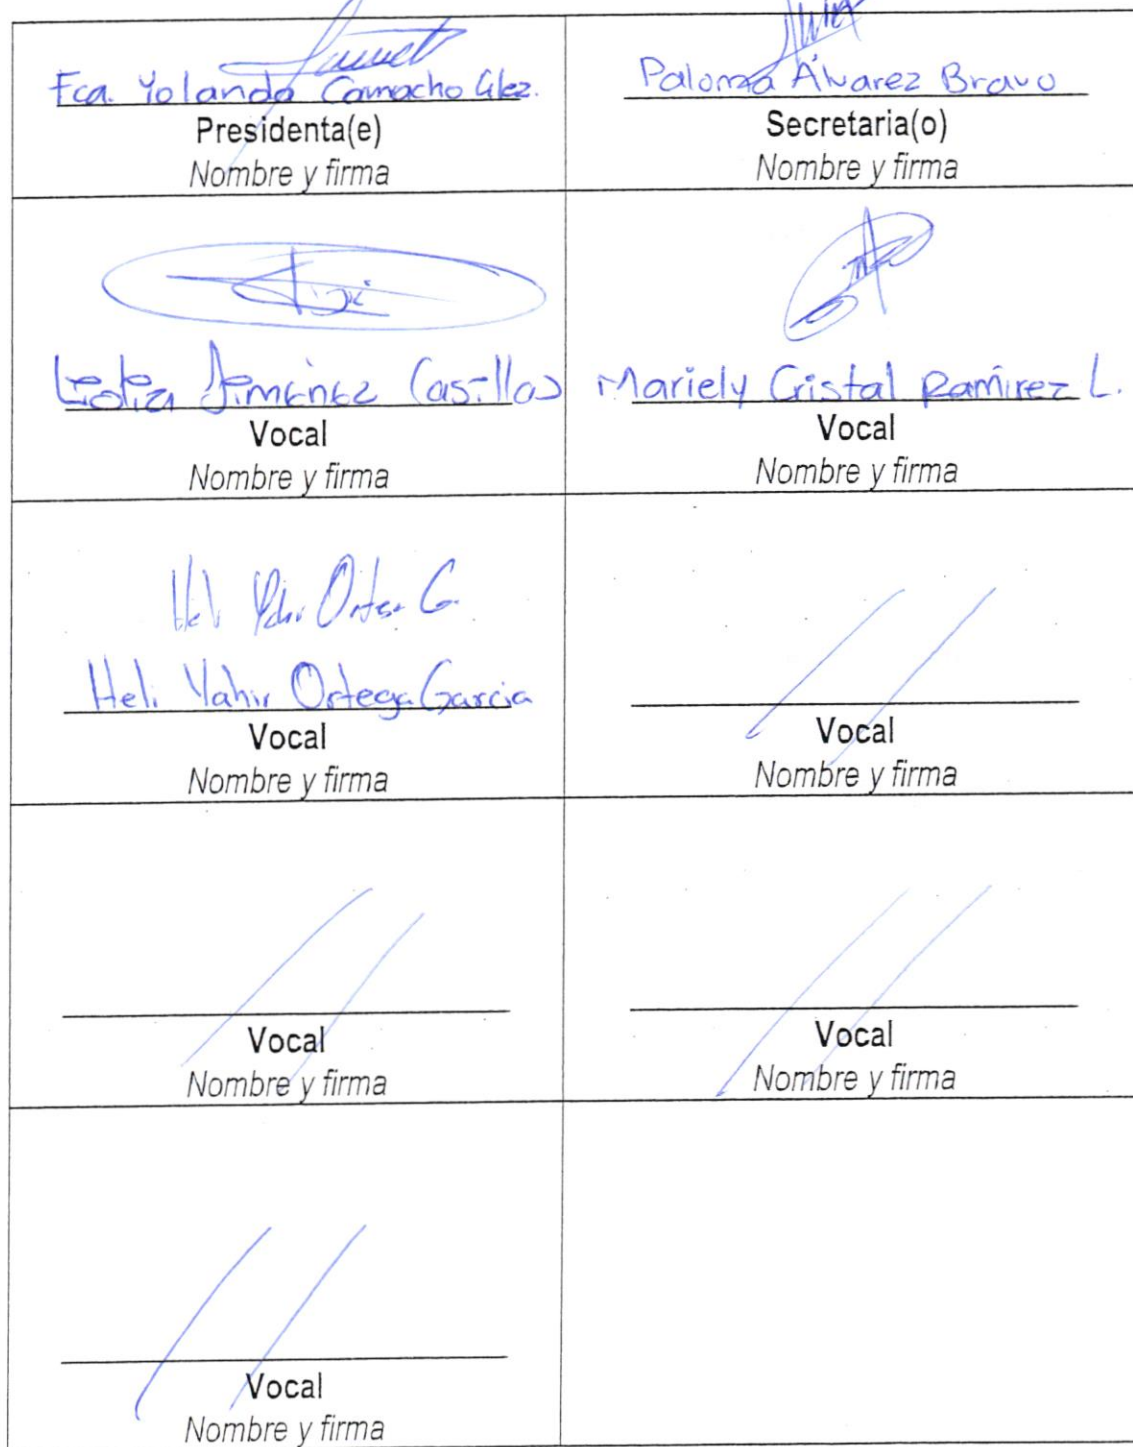 Fca. Yolanda Camacho Glez.
Presidenta(e)
Nombre y firma
Paloma Álvarez Bravo
Secretaria(o)
Nombre y firma
Jiménez Casillas
Vocal
Nombre y firma
Mariely Cristal Ramírez L.
Vocal
Nombre y firma
Heli Yahir Ortega G.
Heli Yahir Ortega Garcia
Vocal
Nombre y firma
Vocal
Nombre y firma
Vocal
Nombre y firma
Vocal
Nombre y firma
Vocal
Nombre y firma